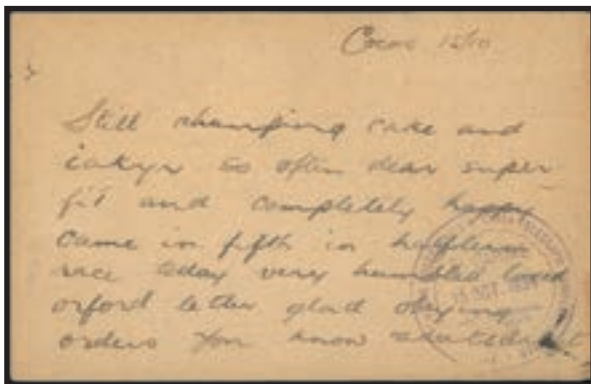 Cocos 15/10
Still champing cake and
so often dear super
fit and completely happy
came in fifth in
race today very humbled loved
orford letter glad obeying
orders you know
15 OCT